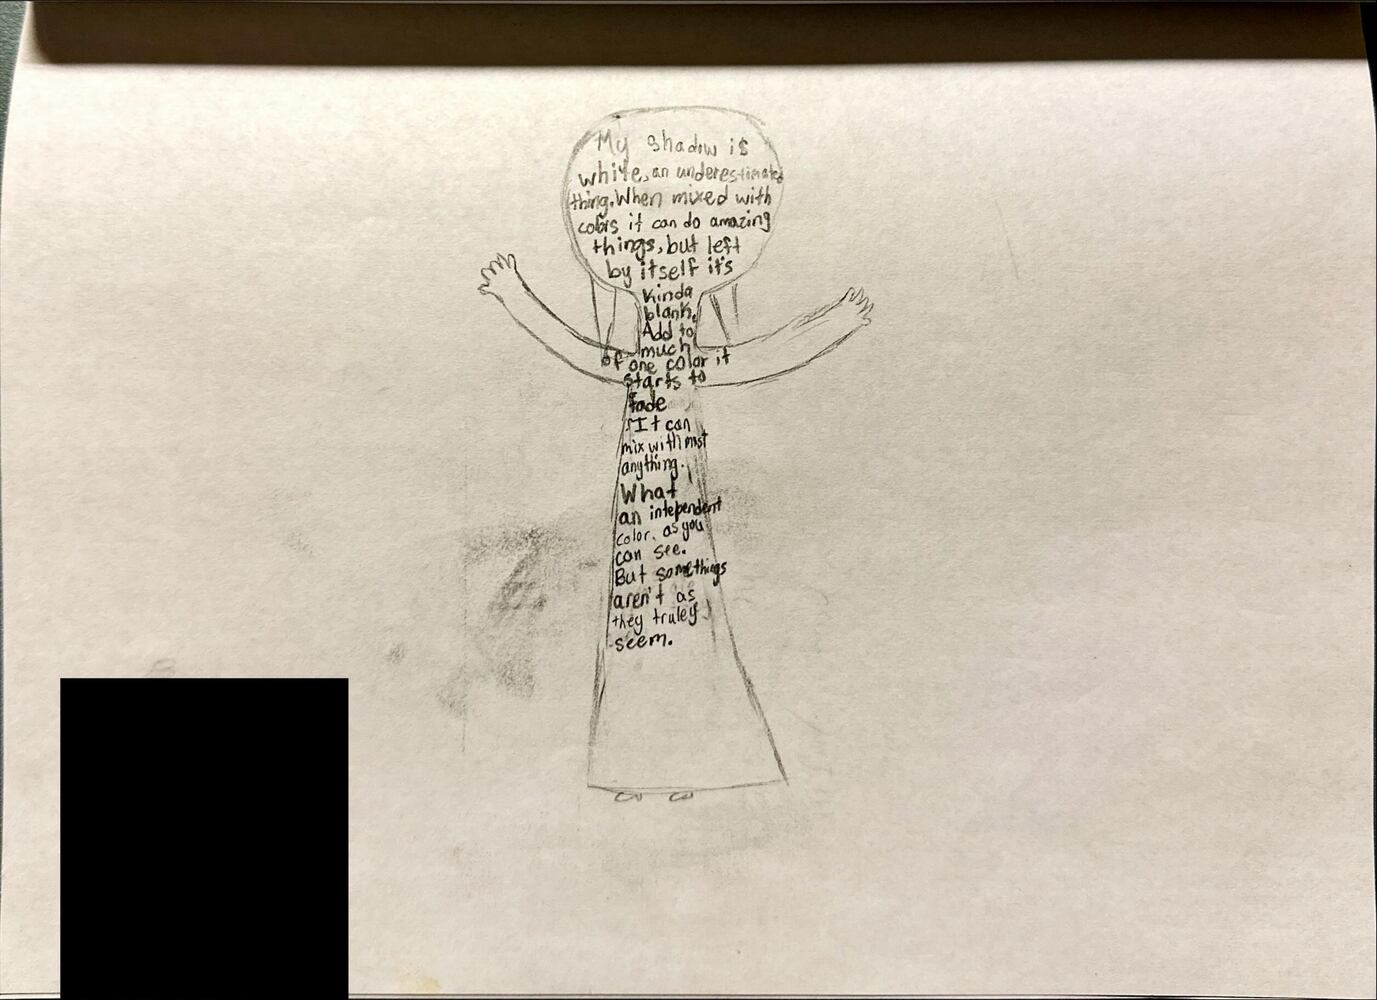 My shadow is
white, an underestimated
thing. When mixed with
colors it can do amazing
things, but left
by itself it's
kinda
blank.
Add to
much
of one color it
starts to
fade
It can
mix with most
anything.
What
an intependent
color. as you
can see.
But somethings
aren't as
they truley
seem.